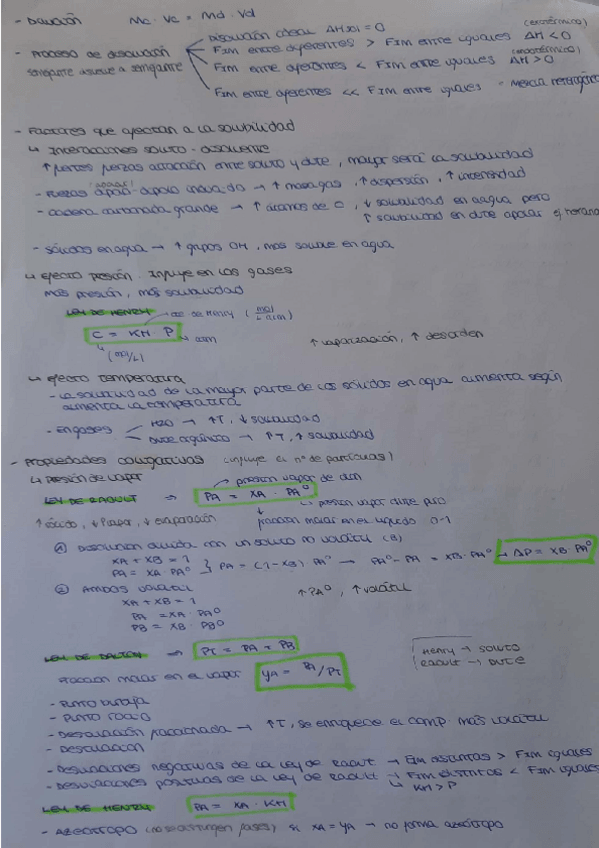 - Dilución Mc · Vc = Md · Vd
- Proceso de disolución
semejante disuelve a semejante
Disolución ideal ΔHsol = 0
FIM entre diferentes > FIM entre iguales ΔH < 0 (exotérmica)
FIM entre diferentes < FIM entre iguales ΔH > 0 (endotérmica)
FIM entre diferentes << FIM entre iguales - mezcla heterogénea
- Factores que afectan a la solubilidad
↳ Interacciones soluto - disolvente
↑ fuertes fuerzas atracción entre soluto y dvte, mayor será la solubilidad
- Fuerzas dipolo-dipolo inducido → ↑ masa gas, ↑ dispersión, ↑ intensidad
- cadena carbonada grande → ↑ átomos de C, ↓ solubilidad en agua pero
↑ solubilidad en dvte apolar ej hexano
- sólidos en agua → ↑ grupos OH, más soluble en agua
↳ efecto presión. Influye en los gases
más presión, más solubilidad
LEY DE HENRY
cte de Henry (mol/L·atm)
C = KH · P → atm
(mol/L)
↑ vaporización, ↑ desorden
↳ efecto temperatura
- La solubilidad de la mayor parte de los sólidos en agua aumenta según
aumenta la temperatura
- En gases
H2O → ↑T, ↓ solubilidad
Dvte orgánico → ↑T, ↑ solubilidad
- Propiedades coligativas (influye el nº de partículas)
↳ Presión de vapor
→ presión vapor de
LEY DE RAOULT ⇒ PA = XA · PAº
→ presión vapor dvte puro
fracción molar en el líquido 0-1
↑ sólido, ↓ Pvapor, ↓ evaporación
① Disolución diluida con un soluto no volátil (B)
XA + XB = 1
PA = XA · PAº } PA = (1-XB) PAº → PAº - PA = XB · PAº → ΔP = XB · PAº
② Ambos volátil ↑ PAº, ↑ volátil
XA + XB = 1
PA = XA · PAº
PB = XB · PBº
LEY DE DALTON ⇒ PT = PA + PB
Henry → soluto
Raoult → dvte
fracción molar en el vapor YA = PA/PT
- Punto burbuja
- Punto rocío
- Destilación fraccionada → ↑T, se enriquece el comp. más volátil
- Destilación
- Desviaciones negativas de la ley de Raoult → FIM distintas > FIM iguales
- Desviaciones positivas de la ley de Raoult → FIM distintos < FIM iguales
↳ KH > P
LEY DE HENRY ⇒ PA = XA · KH
- Azeótropo (no se distinguen fases) si XA = YA → no forma azeótropo